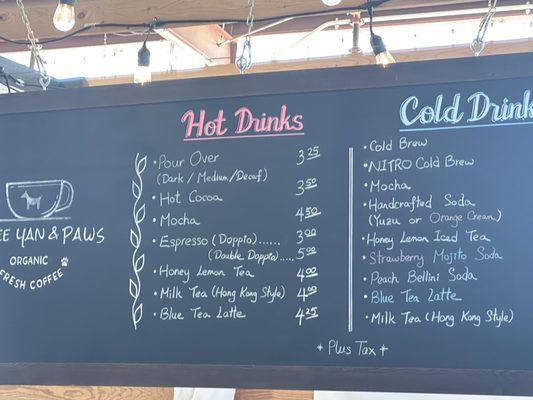 EE YAN & PAWS
ORGANIC
FRESH COFFEE
Hot Drinks
• Pour Over 3.25
(Dark / Medium / Decaf)
• Hot Cocoa 3.50
• Mocha 4.50
• Espresso (Doppio)...... 3.00
(Double Doppio)..... 5.00
• Honey Lemon Tea 4.00
• Milk Tea (Hong Kong Style) 4.00
• Blue Tea Latte 4.25
Cold Drinks
• Cold Brew
• NITRO Cold Brew
• Mocha
• Handcrafted Soda
(Yuzu or Orange Cream)
• Honey Lemon Iced Tea
• Strawberry Mojito Soda
• Peach Bellini Soda
• Blue Tea Latte
• Milk Tea (Hong Kong Style)
+ Plus Tax +